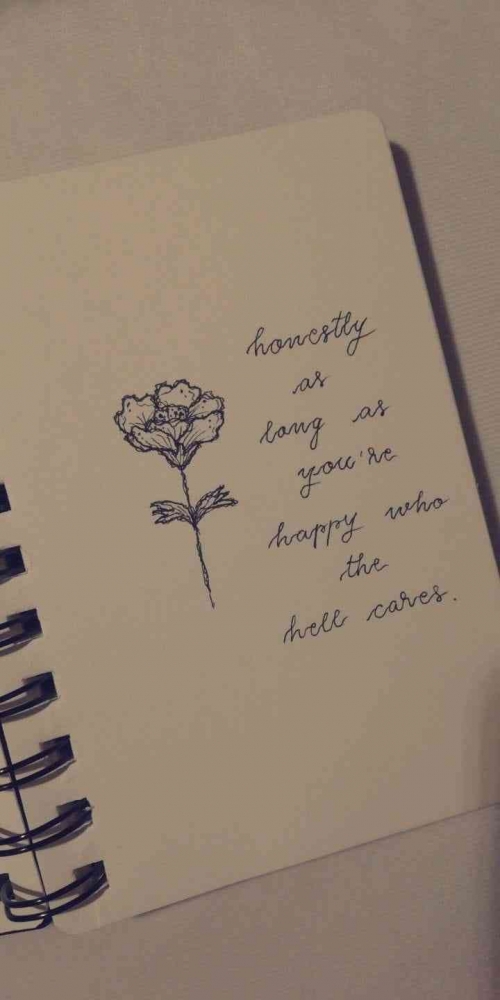 honestly
as
long as
you're
happy who
the
hell cares.